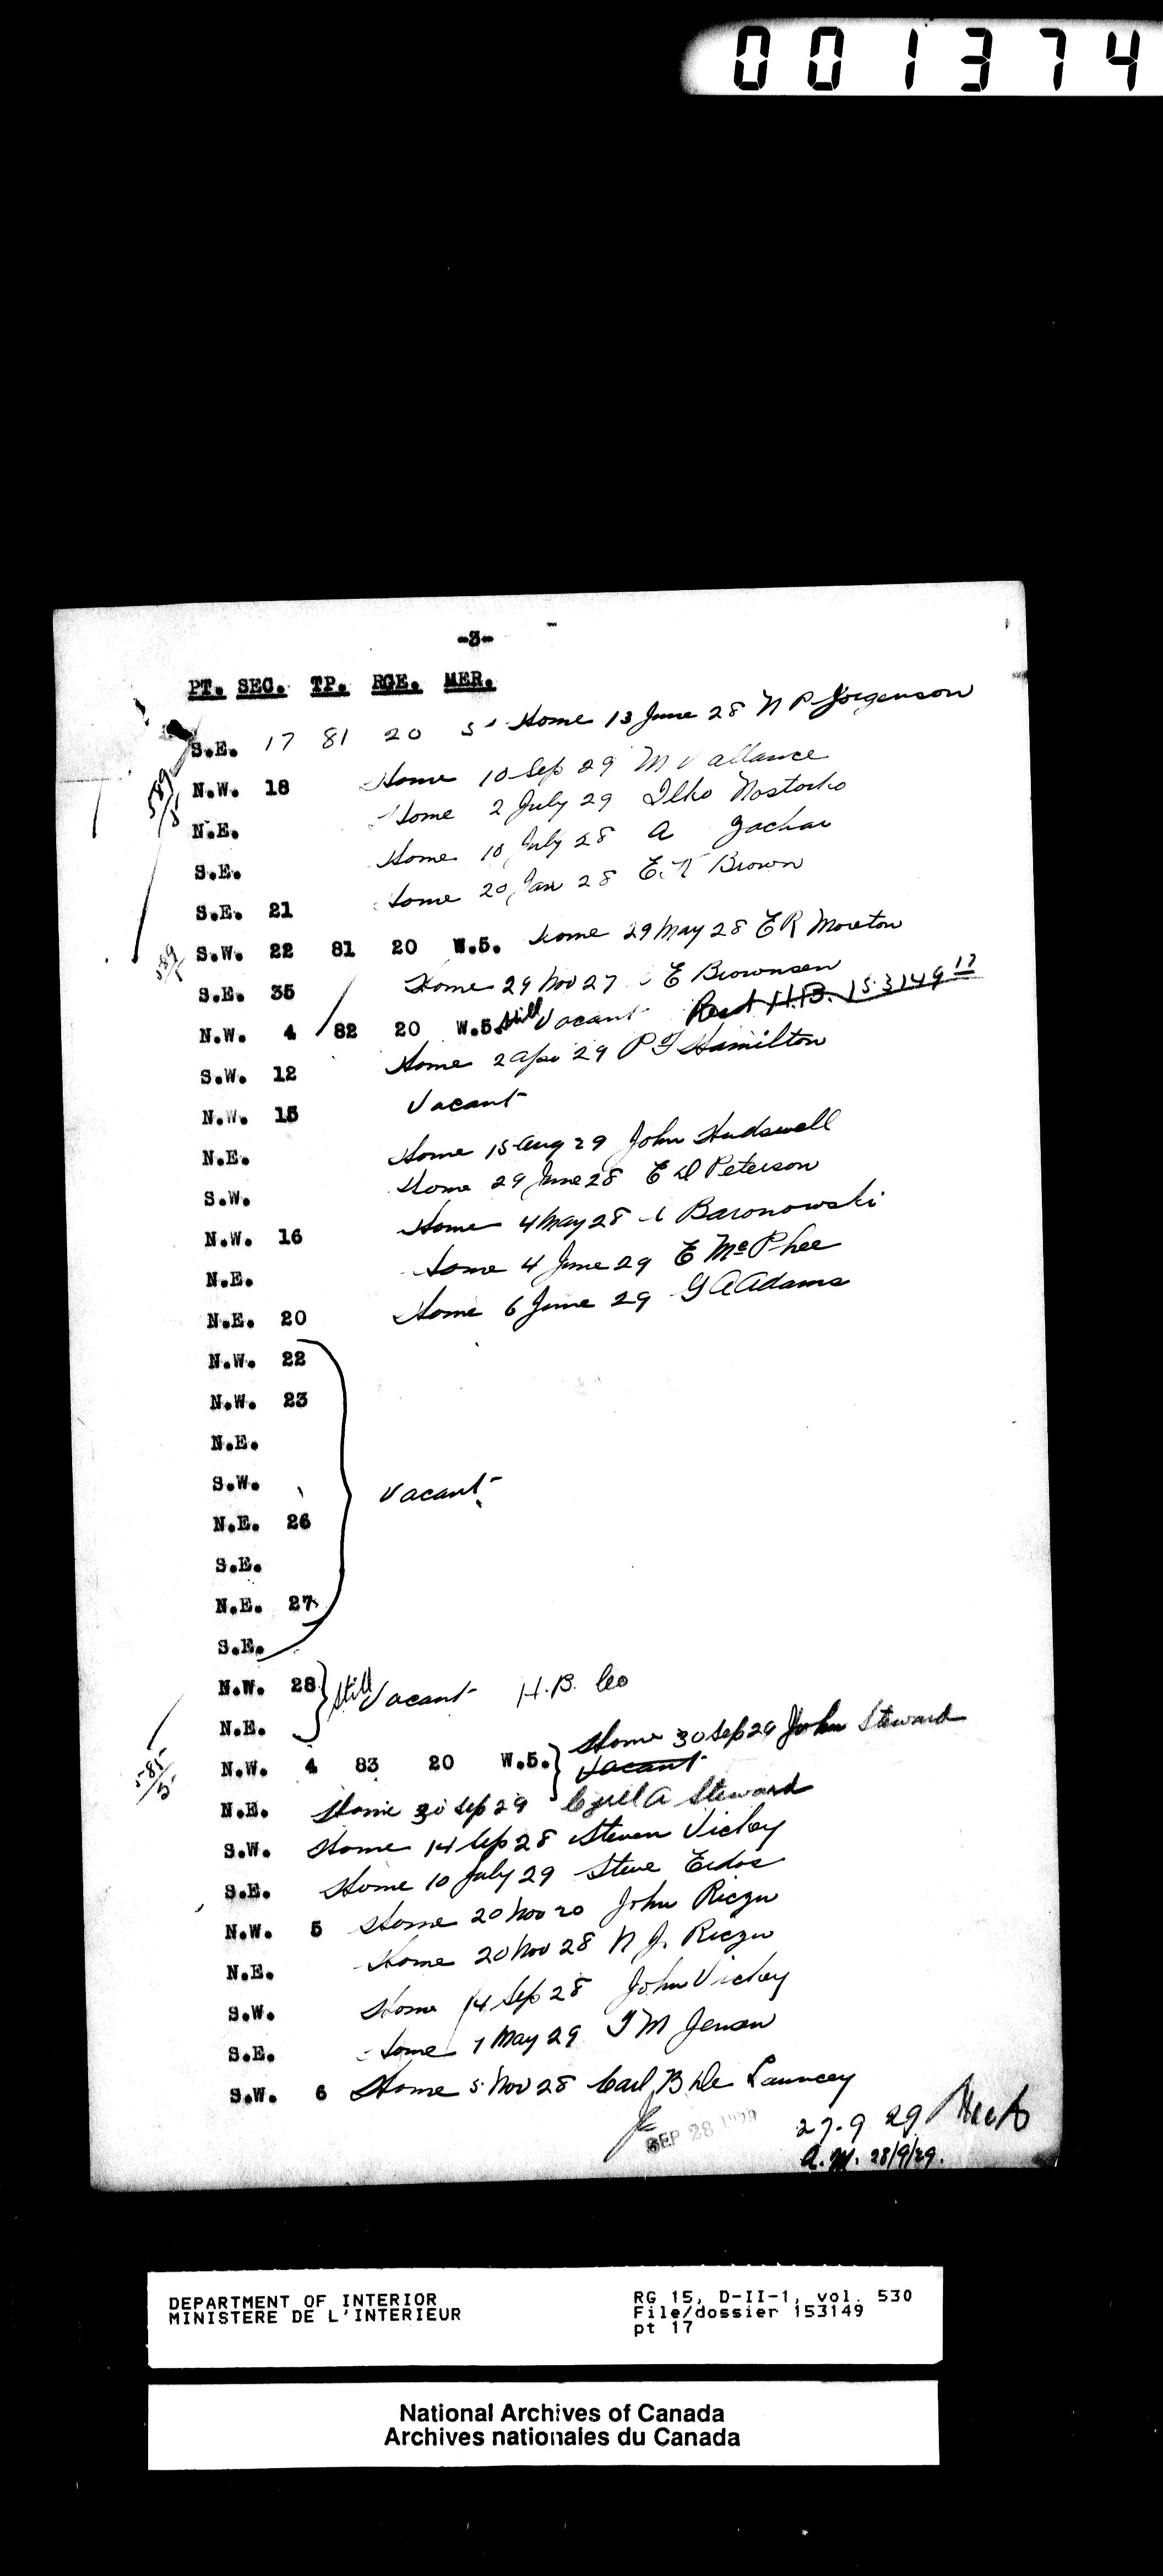 001374
-3-
PT. SEC. TP. RGE. MER.
S.E. 17 81 20 5 Home 13 June 28 N P Jorgenson
N.W. 18 Home 10 Sep 29 M Vallance
N.E. Home 2 July 29 Ilko Nostorko
S.E. Home 10 July 28 A Zachar
S.E. 21 Home 20 Jan 28 E. Brown
S.W. 22 81 20 W.5. Home 29 May 28 E R Moreton
S.E. 35 Home 29 Nov 27 E Brownsen
N.W. 4 82 20 W.5. Still Vacant H.B. 153149 17
S.W. 12 Home 2 Apr 29 P Hamilton
N.W. 15 Vacant
N.E. Home 15 Aug 29 John Hudswell
S.W. Home 29 June 28 E D Peterson
N.W. 16 Home 4 May 28 Baronowski
N.E. Home 4 June 29 E McPhee
N.E. 20 Home 6 June 29 G A Adams
N.W. 22
N.W. 23
N.E.
S.W. Vacant
N.E. 26
S.E.
N.E. 27
S.E.
N.W. 28 Still Vacant H.B. Co
N.E.
N.W. 4 83 20 W.5. Home 30 Sep 29 John Steward
Vacant
N.E. Home 30 Sep 29 Cyrell A Steward
S.W. Home 14 Sep 28 Steven Vickey
S.E. Home 10 July 29 Steve Erdos
N.W. 5 Home 20 Nov John Riczu
N.E. Home 20 Nov 28 N J. Riczu
S.W. Home 14 Sep 28 John Vickey
S.E. Home 7 May 29 M Jensen
S.W. 6 Home 5 Nov 28 Carl B De Launcey
SEP 28 1929
27-9 29
A.M. 28/9/29.
DEPARTMENT OF INTERIOR
MINISTERE DE L'INTERIEUR
RG 15, D-II-1, vol. 530
File/dossier 153149
pt 17
National Archives of Canada
Archives nationales du Canada